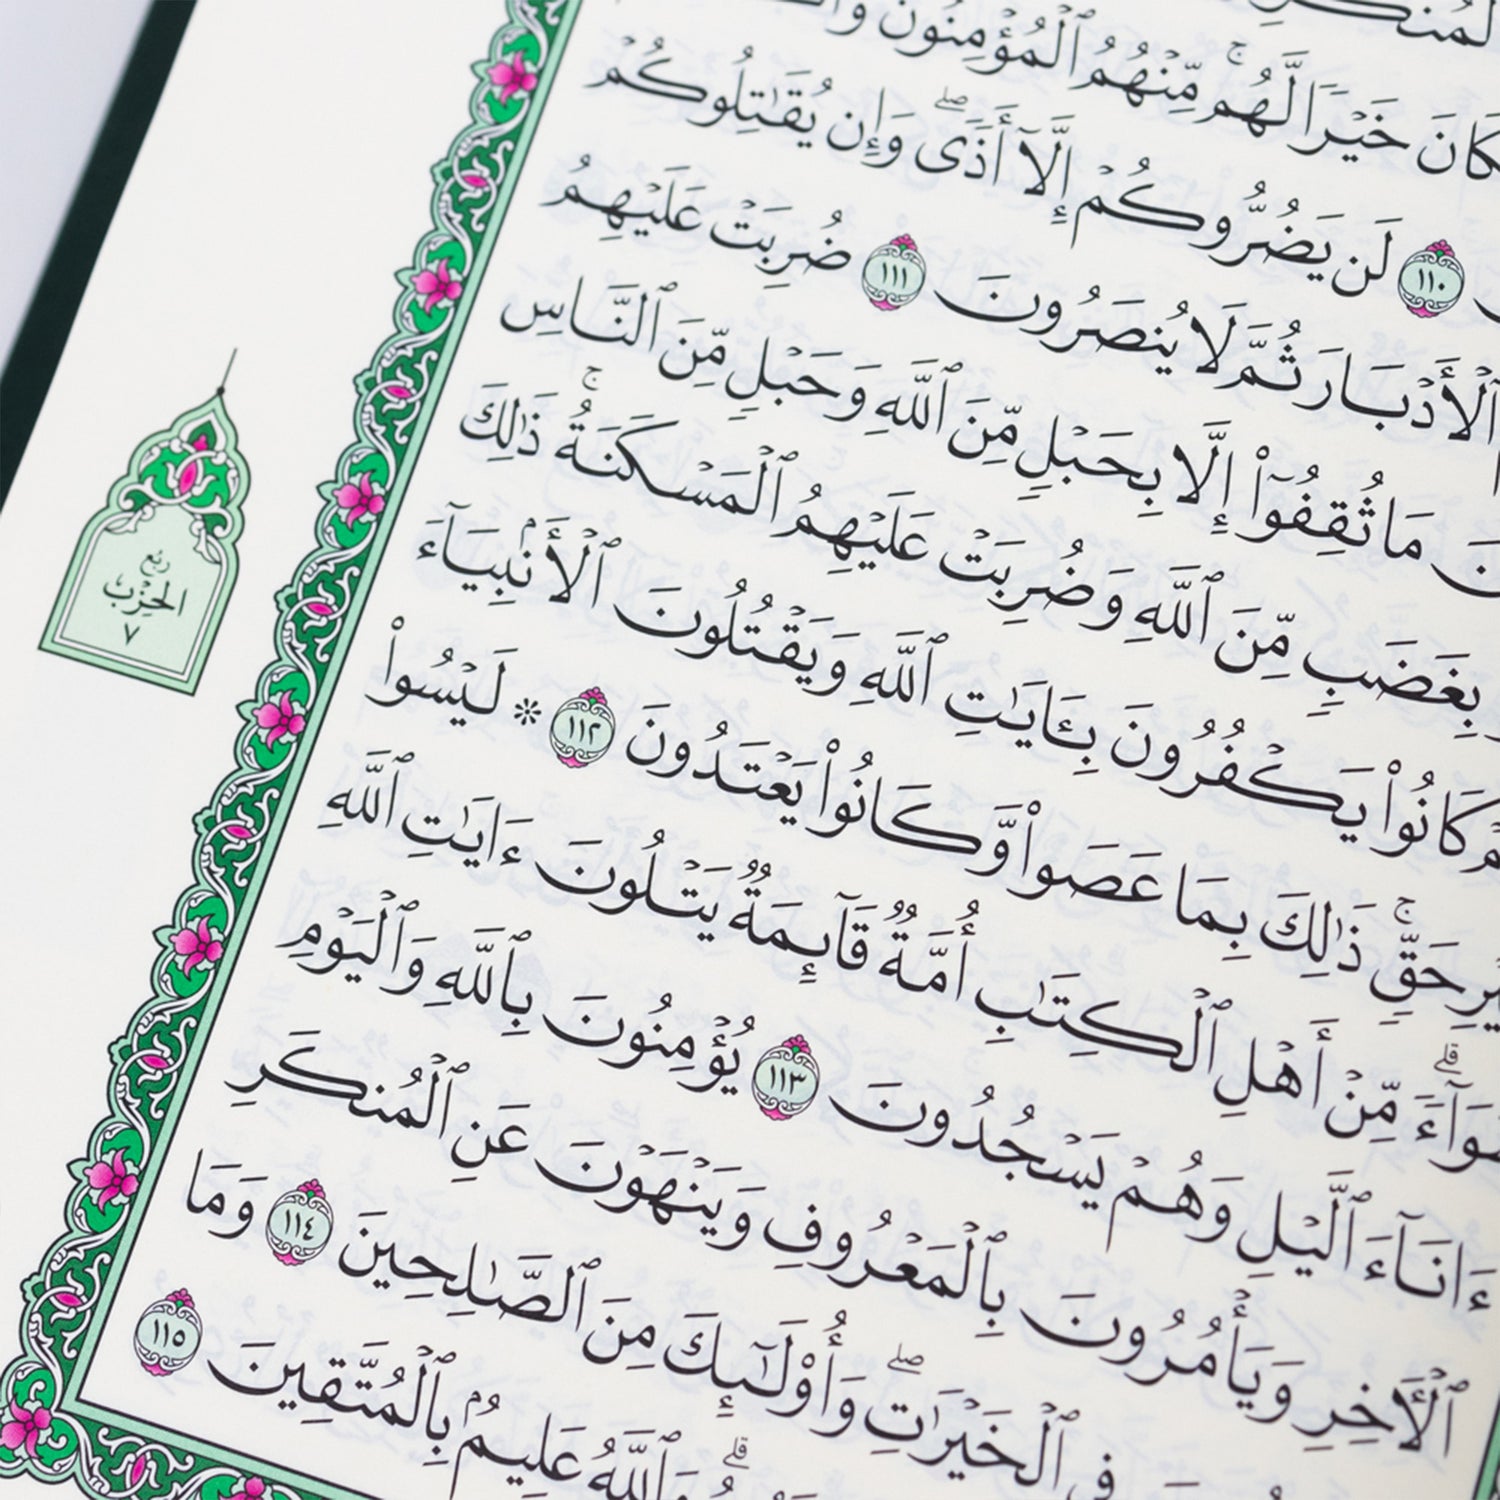 كَانَ خَيْرًا لَّهُم ۚ مِّنْهُمُ ٱلْمُؤْمِنُونَ
١١٠ لَن يَضُرُّوكُمْ إِلَّآ أَذًى ۖ وَإِن يُقَٰتِلُوكُمْ
ٱلْأَدْبَارَ ثُمَّ لَا يُنصَرُونَ ١١١ ضُرِبَتْ عَلَيْهِمُ
مَا ثُقِفُوٓا۟ إِلَّا بِحَبْلٍ مِّنَ ٱللَّهِ وَحَبْلٍ مِّنَ ٱلنَّاسِ
بِغَضَبٍ مِّنَ ٱللَّهِ وَضُرِبَتْ عَلَيْهِمُ ٱلْمَسْكَنَةُ ۚ ذَٰلِكَ
كَانُوا۟ يَكْفُرُونَ بِـَٔايَٰتِ ٱللَّهِ وَيَقْتُلُونَ ٱلْأَنۢبِيَآءَ
حَقٍّ ۚ ذَٰلِكَ بِمَا عَصَوا۟ وَّكَانُوا۟ يَعْتَدُونَ ١١٢ * لَيْسُوا۟
سَوَآءً ۗ مِّنْ أَهْلِ ٱلْكِتَٰبِ أُمَّةٌ قَآئِمَةٌ يَتْلُونَ ءَايَٰتِ ٱللَّهِ
ءَانَآءَ ٱلَّيْلِ وَهُمْ يَسْجُدُونَ ١١٣ يُؤْمِنُونَ بِٱللَّهِ وَٱلْيَوْمِ
ٱلْأَخِرِ وَيَأْمُرُونَ بِٱلْمَعْرُوفِ وَيَنْهَوْنَ عَنِ ٱلْمُنكَرِ
فِى ٱلْخَيْرَٰتِ ۖ وَأُو۟لَٰٓئِكَ مِنَ ٱلصَّٰلِحِينَ ١١٤ وَمَا
ۗ وَٱللَّهُ عَلِيمٌۢ بِٱلْمُتَّقِينَ ١١٥
ربع
الحِزْب
٧